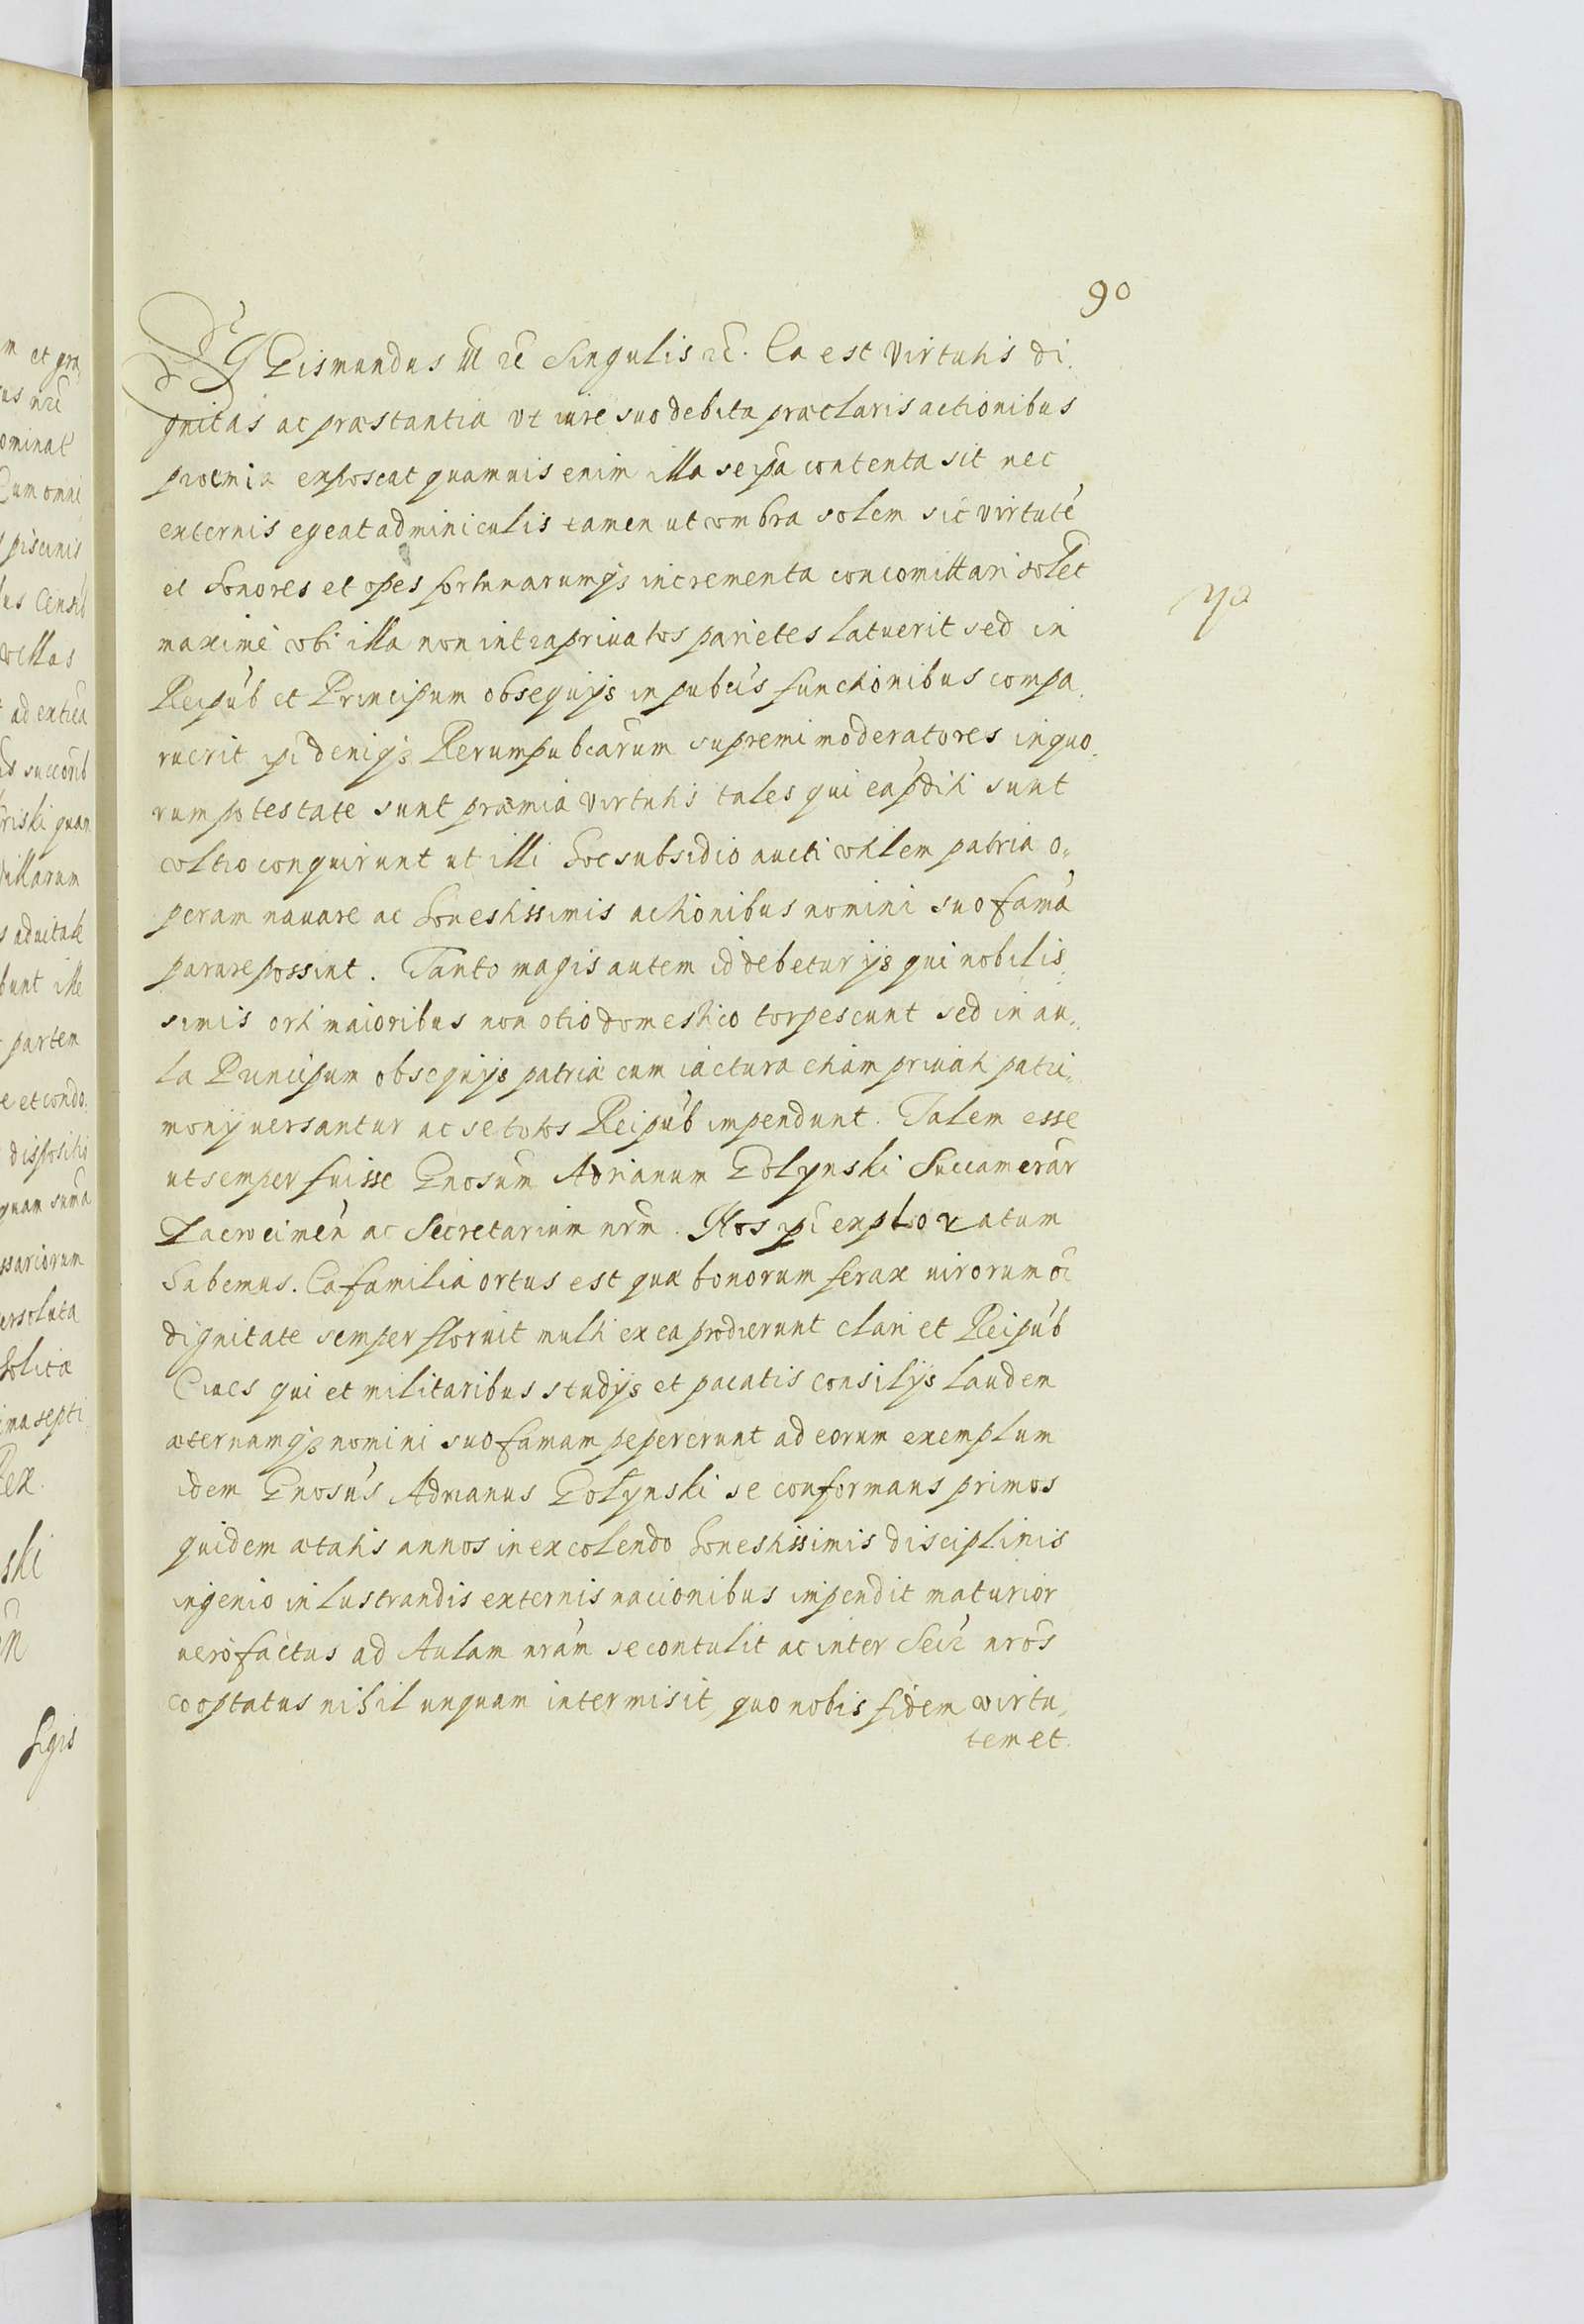 90
SIGismundus III etc Singulis etc. Ea est Virtutis di,
gnitas ac præstantia vt iure suo debita præclaris actionibus
præmia exposcat quamuis enim illa se ipa contenta sit nec
externis egeat adminiculis tamen ut vmbra solem sic virtute
et honores et opes fortunarumq3 incrementa concomittari solet
maxime vbi illa non intra priuatos parietes latuerit sed in
Reipub et Principum obsequijs in pubcis functionibus compa,
ruerit ipi deniq3 Rerumpubcarum supremi moderatores in quo,
rum potestate sunt præmia virtutis tales qui ea pditi sunt
vltro conquirunt ut illi hoc subsidio aucti vtilem patriæ o=
peram nauare ac honestissimis actionibus nomini suo fama
parare possint. Tanto magis autem id debetur ijs qui nobilis,
simis orti maioribus non otio domestico torpescunt sed in au,
la Principum obsequijs patriæ cum iactura etiam priuati patri,
monij uersantur ac se totos Reipub impendunt. Talem esse
ut semper fuisse Gnosum Adrianum Golynski Succamerar
Zacrocimen ac Secretarium nrm. Nos pi exploratum
habemus. Ea familia ortus est quæ bonorum ferax uirorum
dignitate semper floruit multi ex ea prodierunt clari et Reipub
Ciues qui et militaribus studijs et pacatis consilijs laudem
æternamq3 nomini suo famam pepererunt ad eorum exemplum
idem Gnosus Adrianus Golynski se conformans primos
quidem ætatis annos in excolendo honestissimis disciplinis
ingenio in lustrandis externis nacionibus impendit maturior
uero factus ad Aulam nram se contulit ac inter Secr nros
cooptatus nihil unquam intermisit, quo nobis fidem virtu,
tem et